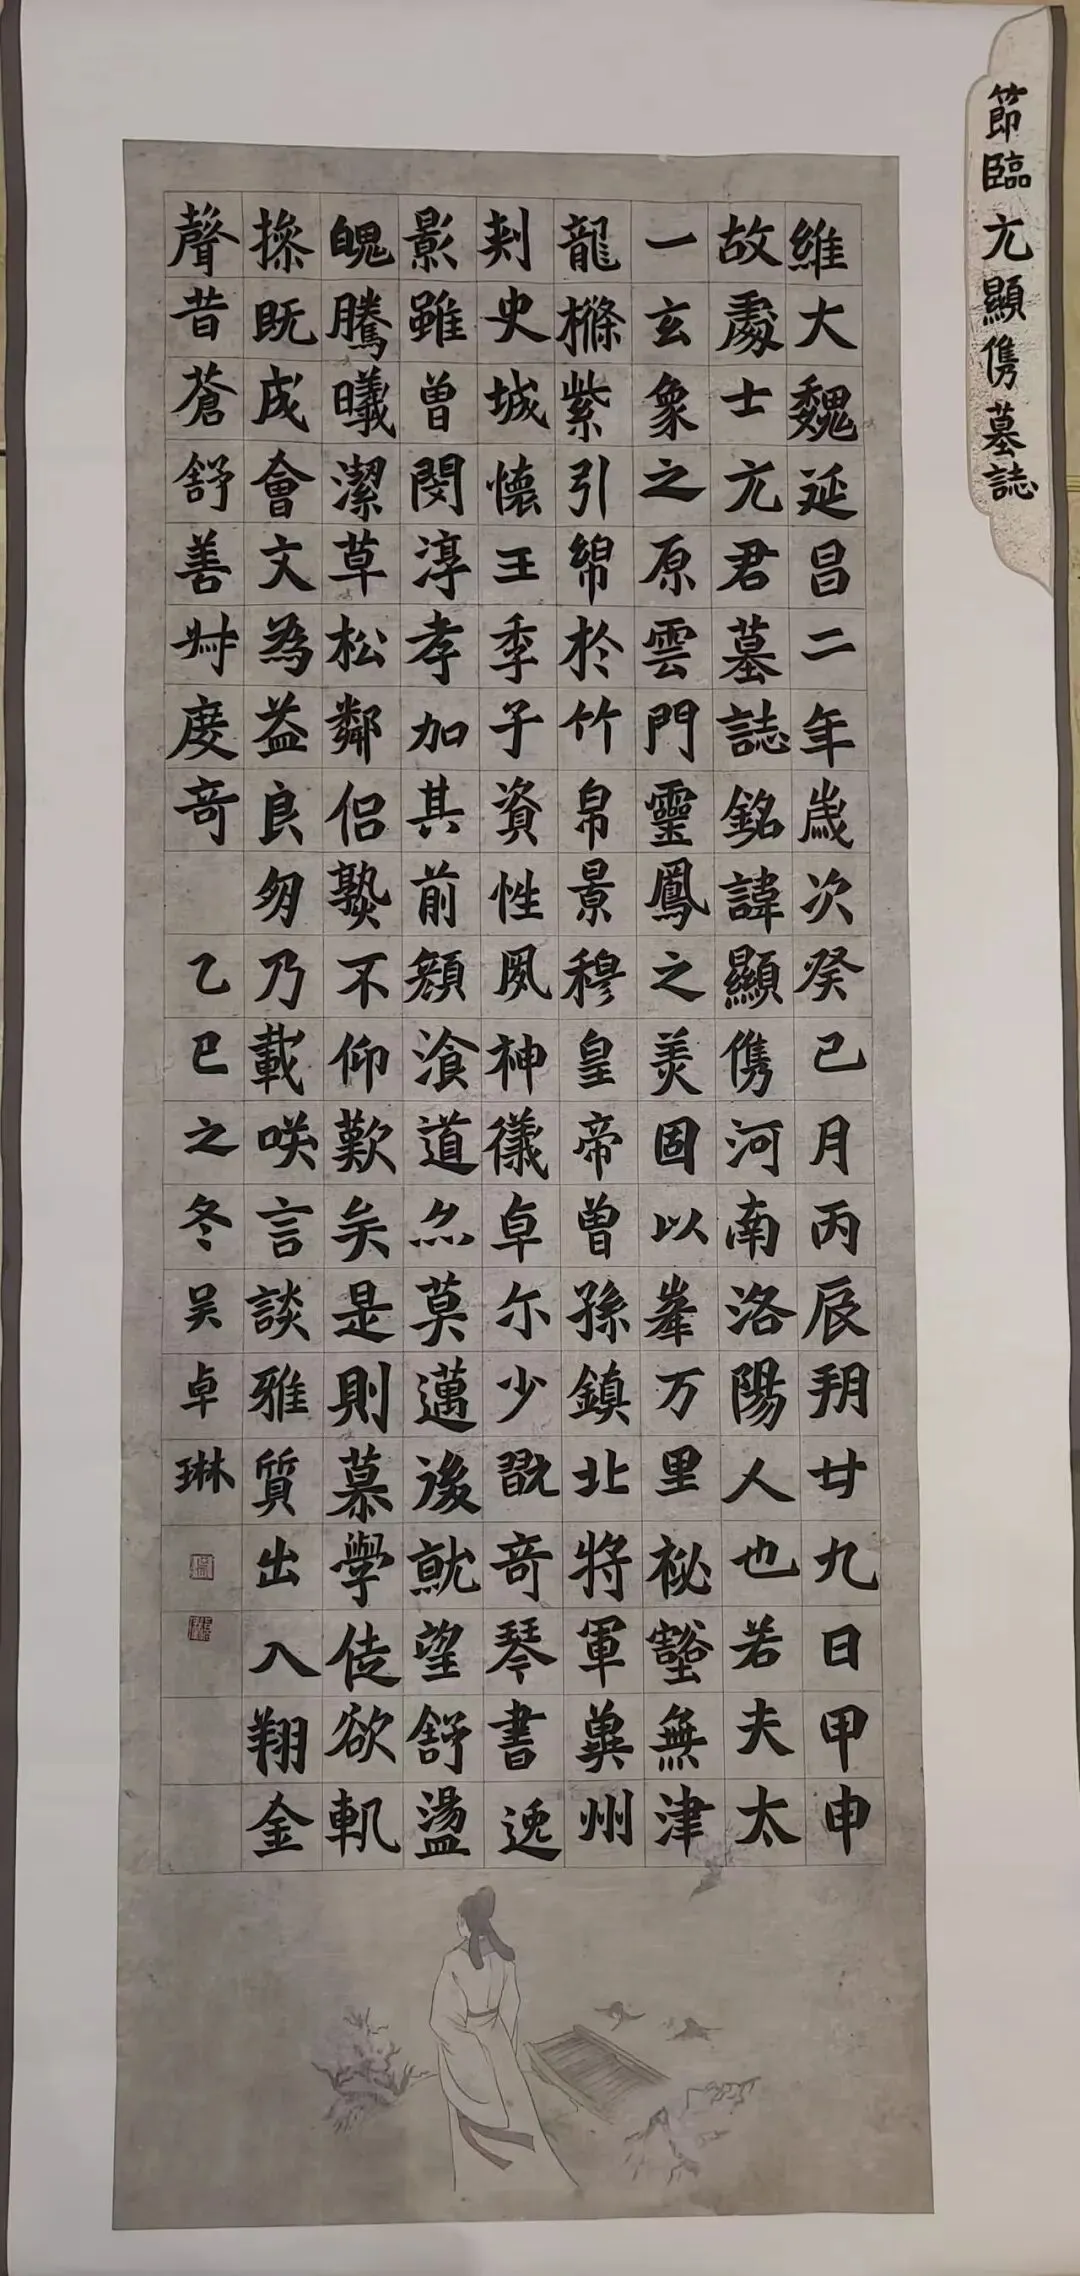 節臨元顯儁墓誌
維大魏延昌二年歲次癸巳月丙辰朔廿九日甲申
故處士元君墓誌銘諱顯儁河南洛陽人也若夫太
一玄象之原雲門靈鳳之美固以峯万里秘壑無津
龍樤紫引綿於竹帛景穆皇帝曾孫鎮北將軍冀州
刺史城懷王季子資性夙神儀卓尓少翫奇琴書逸
影雖曾閔淳孝加其前顏湌道亦莫邁後就望舒盪
魄騰曦潔草松鄰侶熟不仰歎矣是則慕學徒欲軌
操既成會文為益良朋乃載咲言談雅質出入翔金
聲昔蒼舒善叶度奇
乙巳之冬吴卓琳